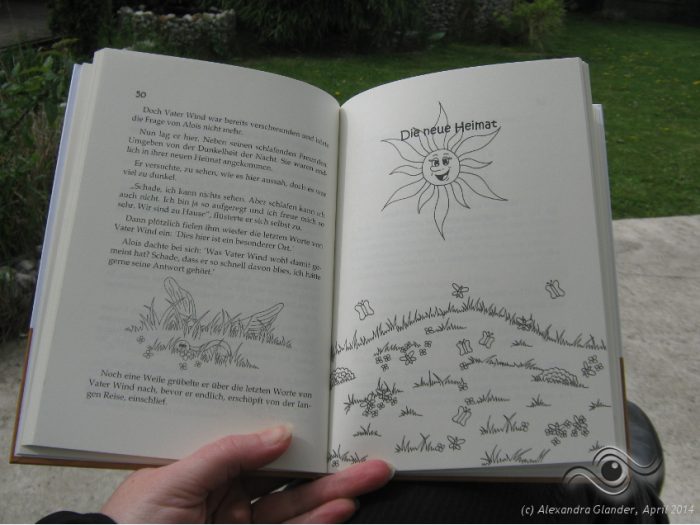 50
Doch Vater Wind war bereits verschwunden und hörte
die Frage von Alois nicht mehr.
Nun lag er hier. Neben seinen schlafenden Freunden.
Umgeben von der Dunkelheit der Nacht. Sie waren end-
lich in ihrer neuen Heimat angekommen.
Er versuchte, zu sehen, wie es hier aussah, doch es war
viel zu dunkel.
„Schade, ich kann nichts sehen. Aber schlafen kann ich
auch nicht. Ich bin ja so aufgeregt und ich freue mich so
sehr. Wir sind zu Hause“, flüsterte er sich selbst zu.
Dann plötzlich fielen ihm wieder die letzten Worte von
Vater Wind ein: ‚Dies hier ist ein besonderer Ort.‘
Alois dachte bei sich: ‚Was Vater Wind wohl damit ge-
meint hat? Schade, dass er so schnell davon blies, ich hätte
gerne seine Antwort gehört.‘
Noch eine Weile grübelte er über die letzten Worte von
Vater Wind nach, bevor er endlich, erschöpft von der lan-
gen Reise, einschlief.
Die neue Heimat
(c) Alexandra Glander, April 2014